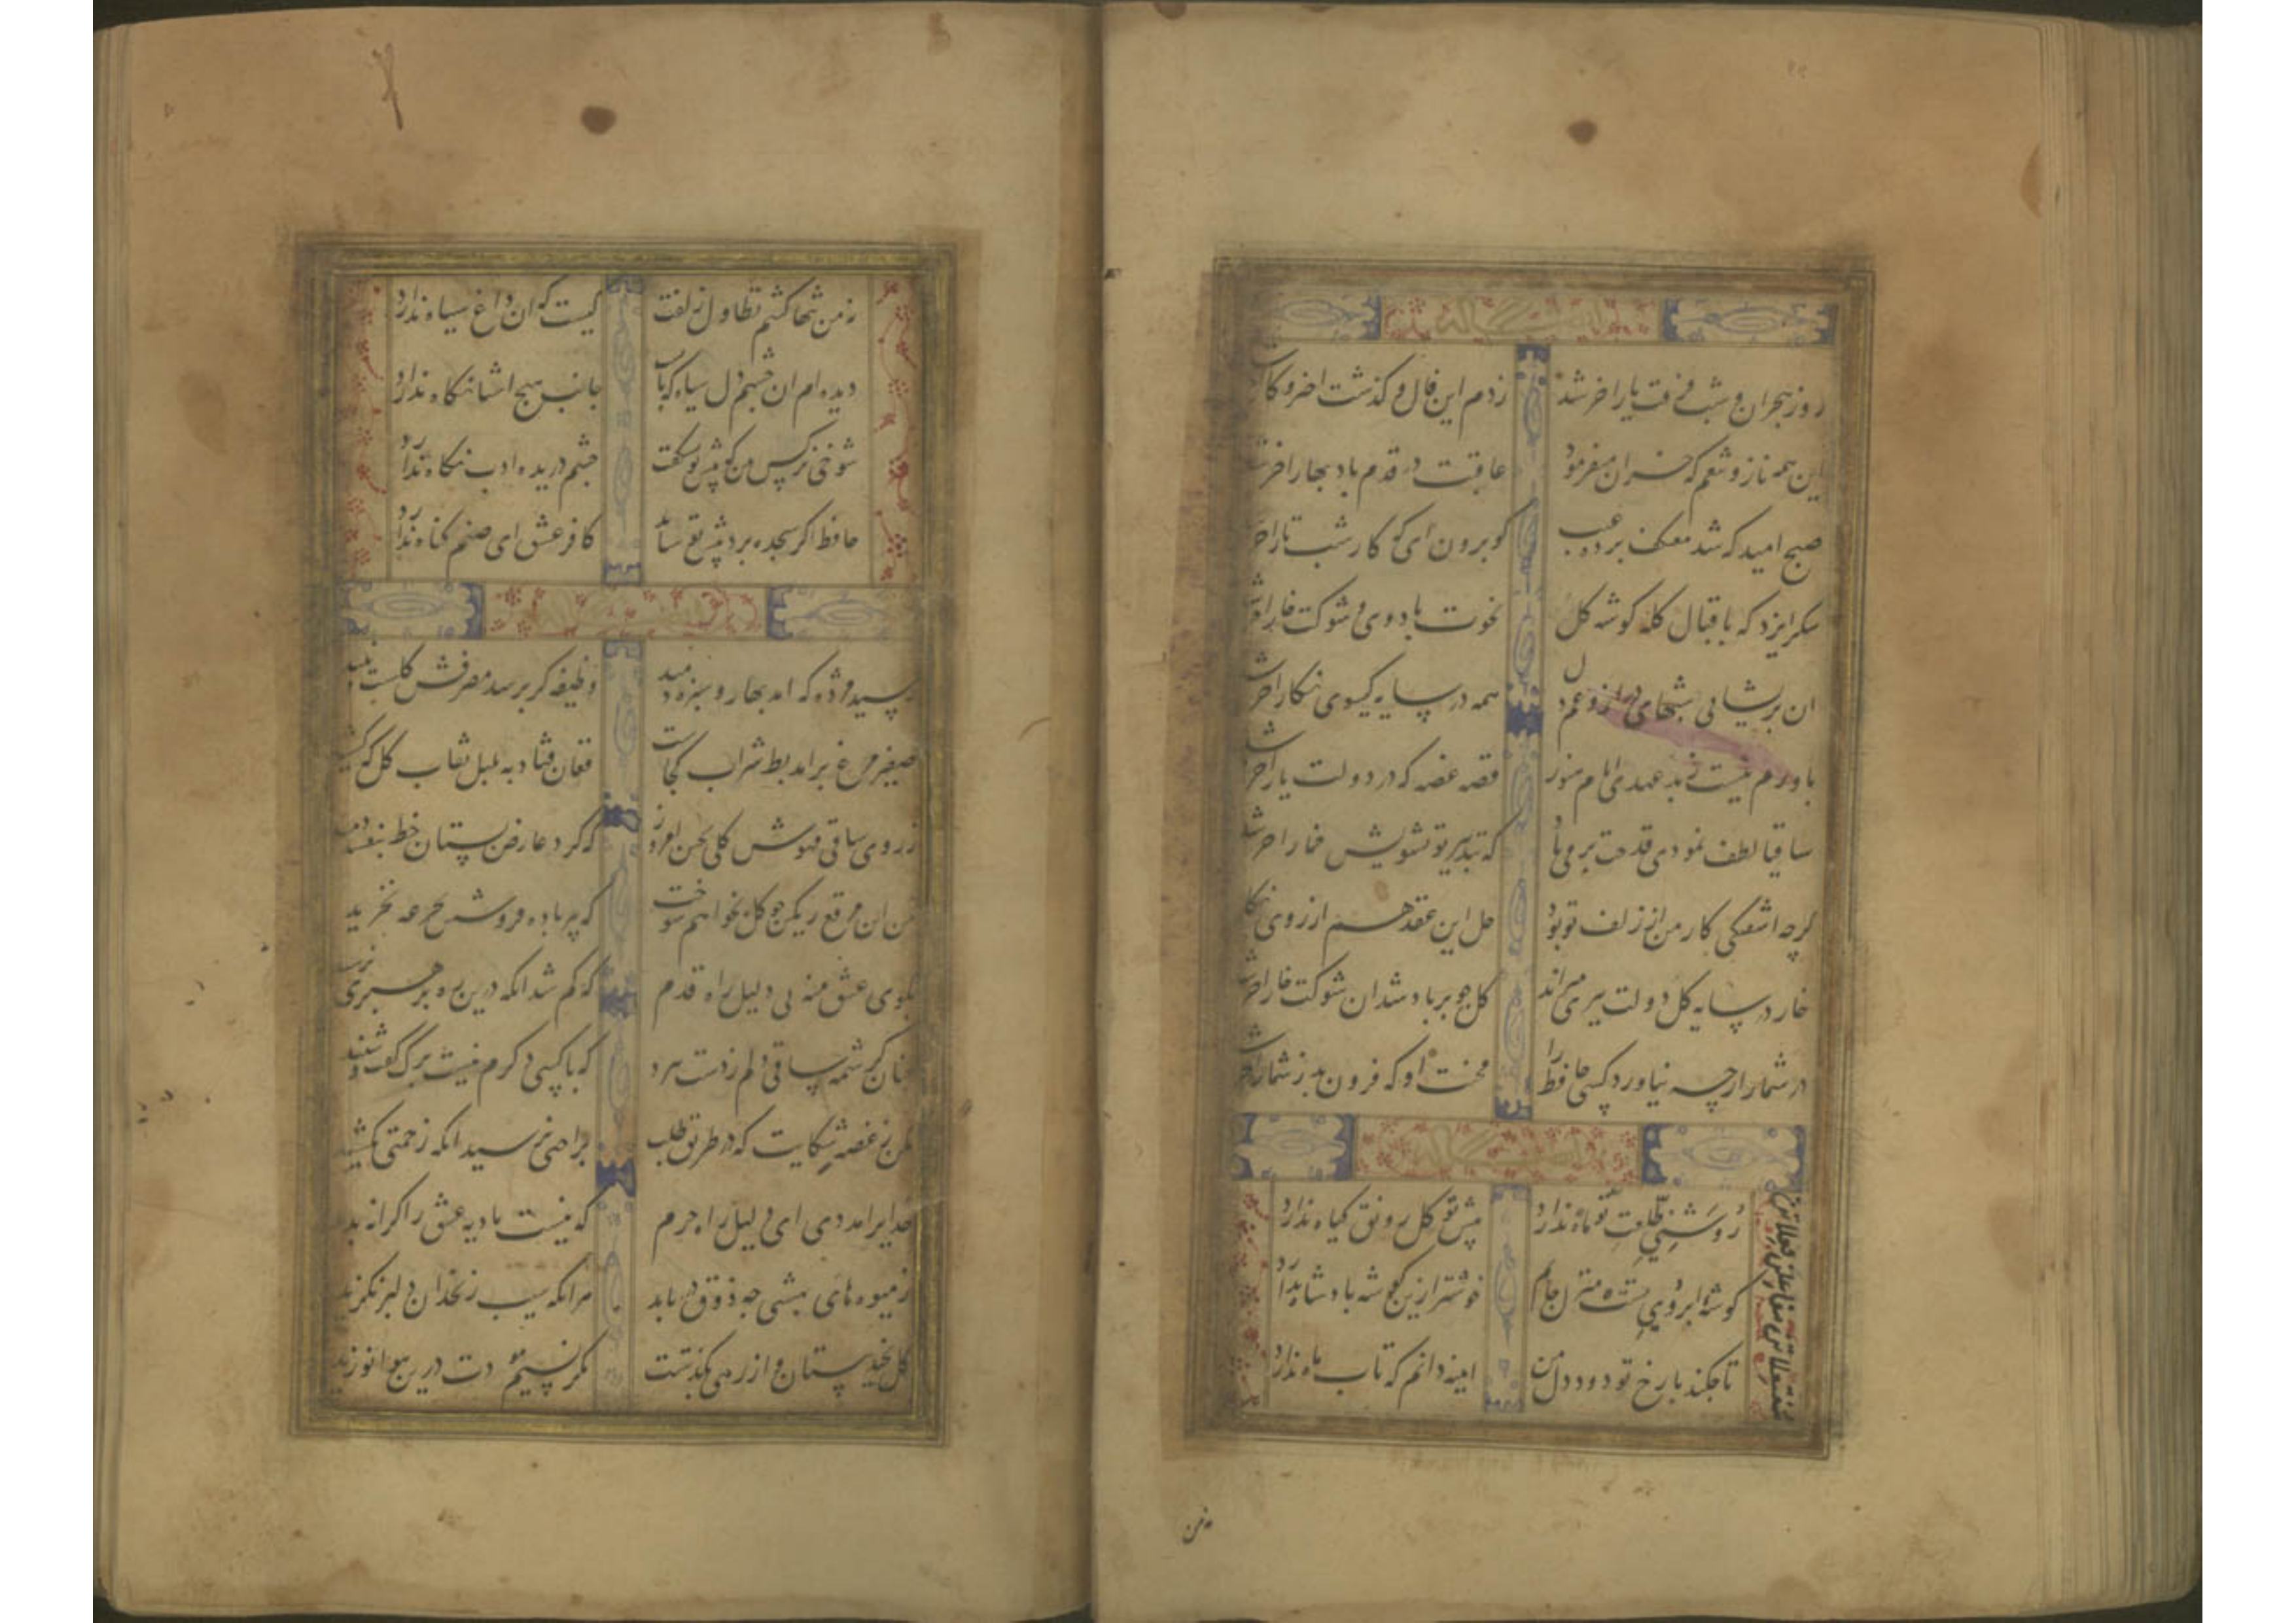 روز هجران و شب فرقت یار اخر شد زدم این فال و گذشت اختر و کار
این همه ناز و تنعم که خزان میفرمود عاقبت در قدم باد بهار اخر شد
صبح امید که شد معتکف پرده غیب کو برون ای که کار شب تار اخر
شکر ایزد که باقبال کله گوشه گل نخوت باد دی و شوکت خار اخر شد
ان پریشانی شبهای دراز و غم دل همه در سایه گیسوی نگار اخر شد
باورم نیست ز بد عهدی ایام هنوز قصه غصه که در دولت یار اخر شد
ساقیا لطف نمودی قدحت پر می باد که بتدبیر تو تشویش خمار اخر شد
گرچه اشفتگی کار من از زلف تو بود حل این عقده هم از روی نگار
خار در سایه گل دولت پیری میراند گل چو بر باد شد ان شوکت خار اخر شد
در شمار ارچه نیاورد کسی حافظ را محنت او که فزون بد ز شمار اخر شد
روشنی طلعت تو ماه ندارد پیش تو گل رونق گیاه ندارد
گوشه ابروی تست منزل جانم خوشتر ازین گوشه پادشاه ندارد
تا چکند با رخ تو دود دل من اینه دانم که تاب اه ندارد
مفتعلاتن مفاعلن فعلاتن
نه من
نه من تنها کشم تطاول زلفت کیست که ان داغ سیاه ندارد
دیده ام ان چشم دل سیاه که باب جانب هیچ اشنا نگاه ندارد
شوخی نرگس من که پیش تو بشکفت چشم دریده ادب نگاه ندارد
حافظ اگر سجده برد پیش تو شاید کافر عشق ای صنم گناه ندارد
رسید مژده که امد بهار و سبزه دمید وظیفه گر برسد مصرفش گلست و نبید
صفیر مرغ برامد بط شراب کجاست فغان فتاد به بلبل نقاب گل که کشید
ز روی ساقی مهوش گلی بچن امروز که گرد عارض بستان خط بنفشه دمید
من ان مرقع رنگین چو گل نخواهم سوخت که پیر باده فروشش بجرعه نخرید
بکوی عشق منه بی دلیل راه قدم که گم شد انکه درین ره برهبری نرسید
چنان کرشمه ساقی دلم ز دست ببرد که با کسی دکرم نیست برگ گفت و شنید
مکن ز غصه شکایت که در طریق طلب براحتی نرسید انکه زحمتی نکشید
خدایرا مددی ای دلیل راه حرم که نیست بادیه عشق را کرانه پدید
ز میوه های بهشتی چه ذوق در یابد هر انکه سیب زنخدان دلبر نگزید
گل نچید بستان و از رهی بگذشت مگر نسیم درین هوا نوزید